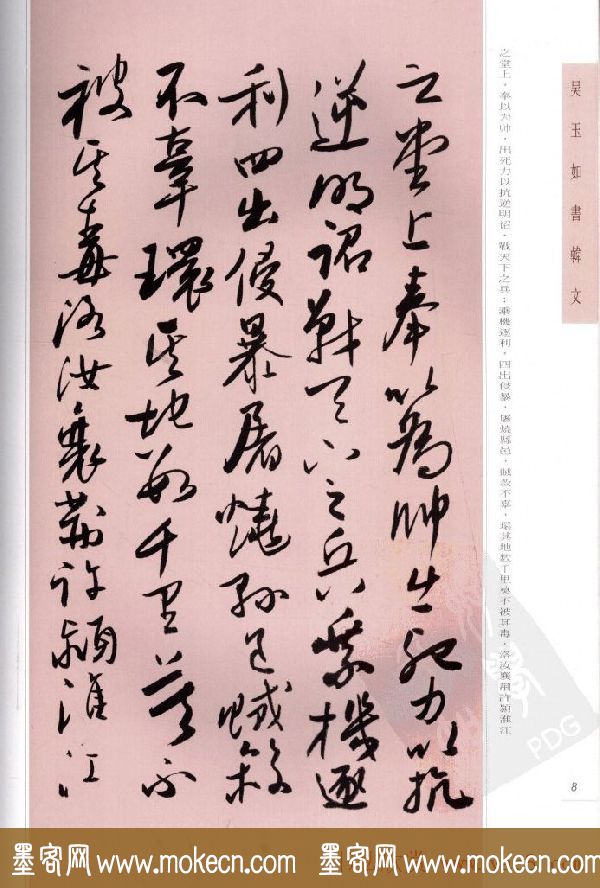 吴玉如書韓文
之堂上，奉以为帅，出死力以抗逆明诏，戰天下之兵；乘機逐利，四出侵暴，屠燒縣邑，賊殺不辜，環其地數千里莫不被其毒，洛汝襄荊許潁淮江
之堂上奉以為帅出死力以抗
逆明詔戰天下之兵乘機逐
利四出侵暴屠燒縣邑賊殺
不辜環其地數千里莫不
被其毒洛汝襄荊許潁淮江
8
PDG
墨客网 www.mokecn.com 墨客网 www.mokecn.com